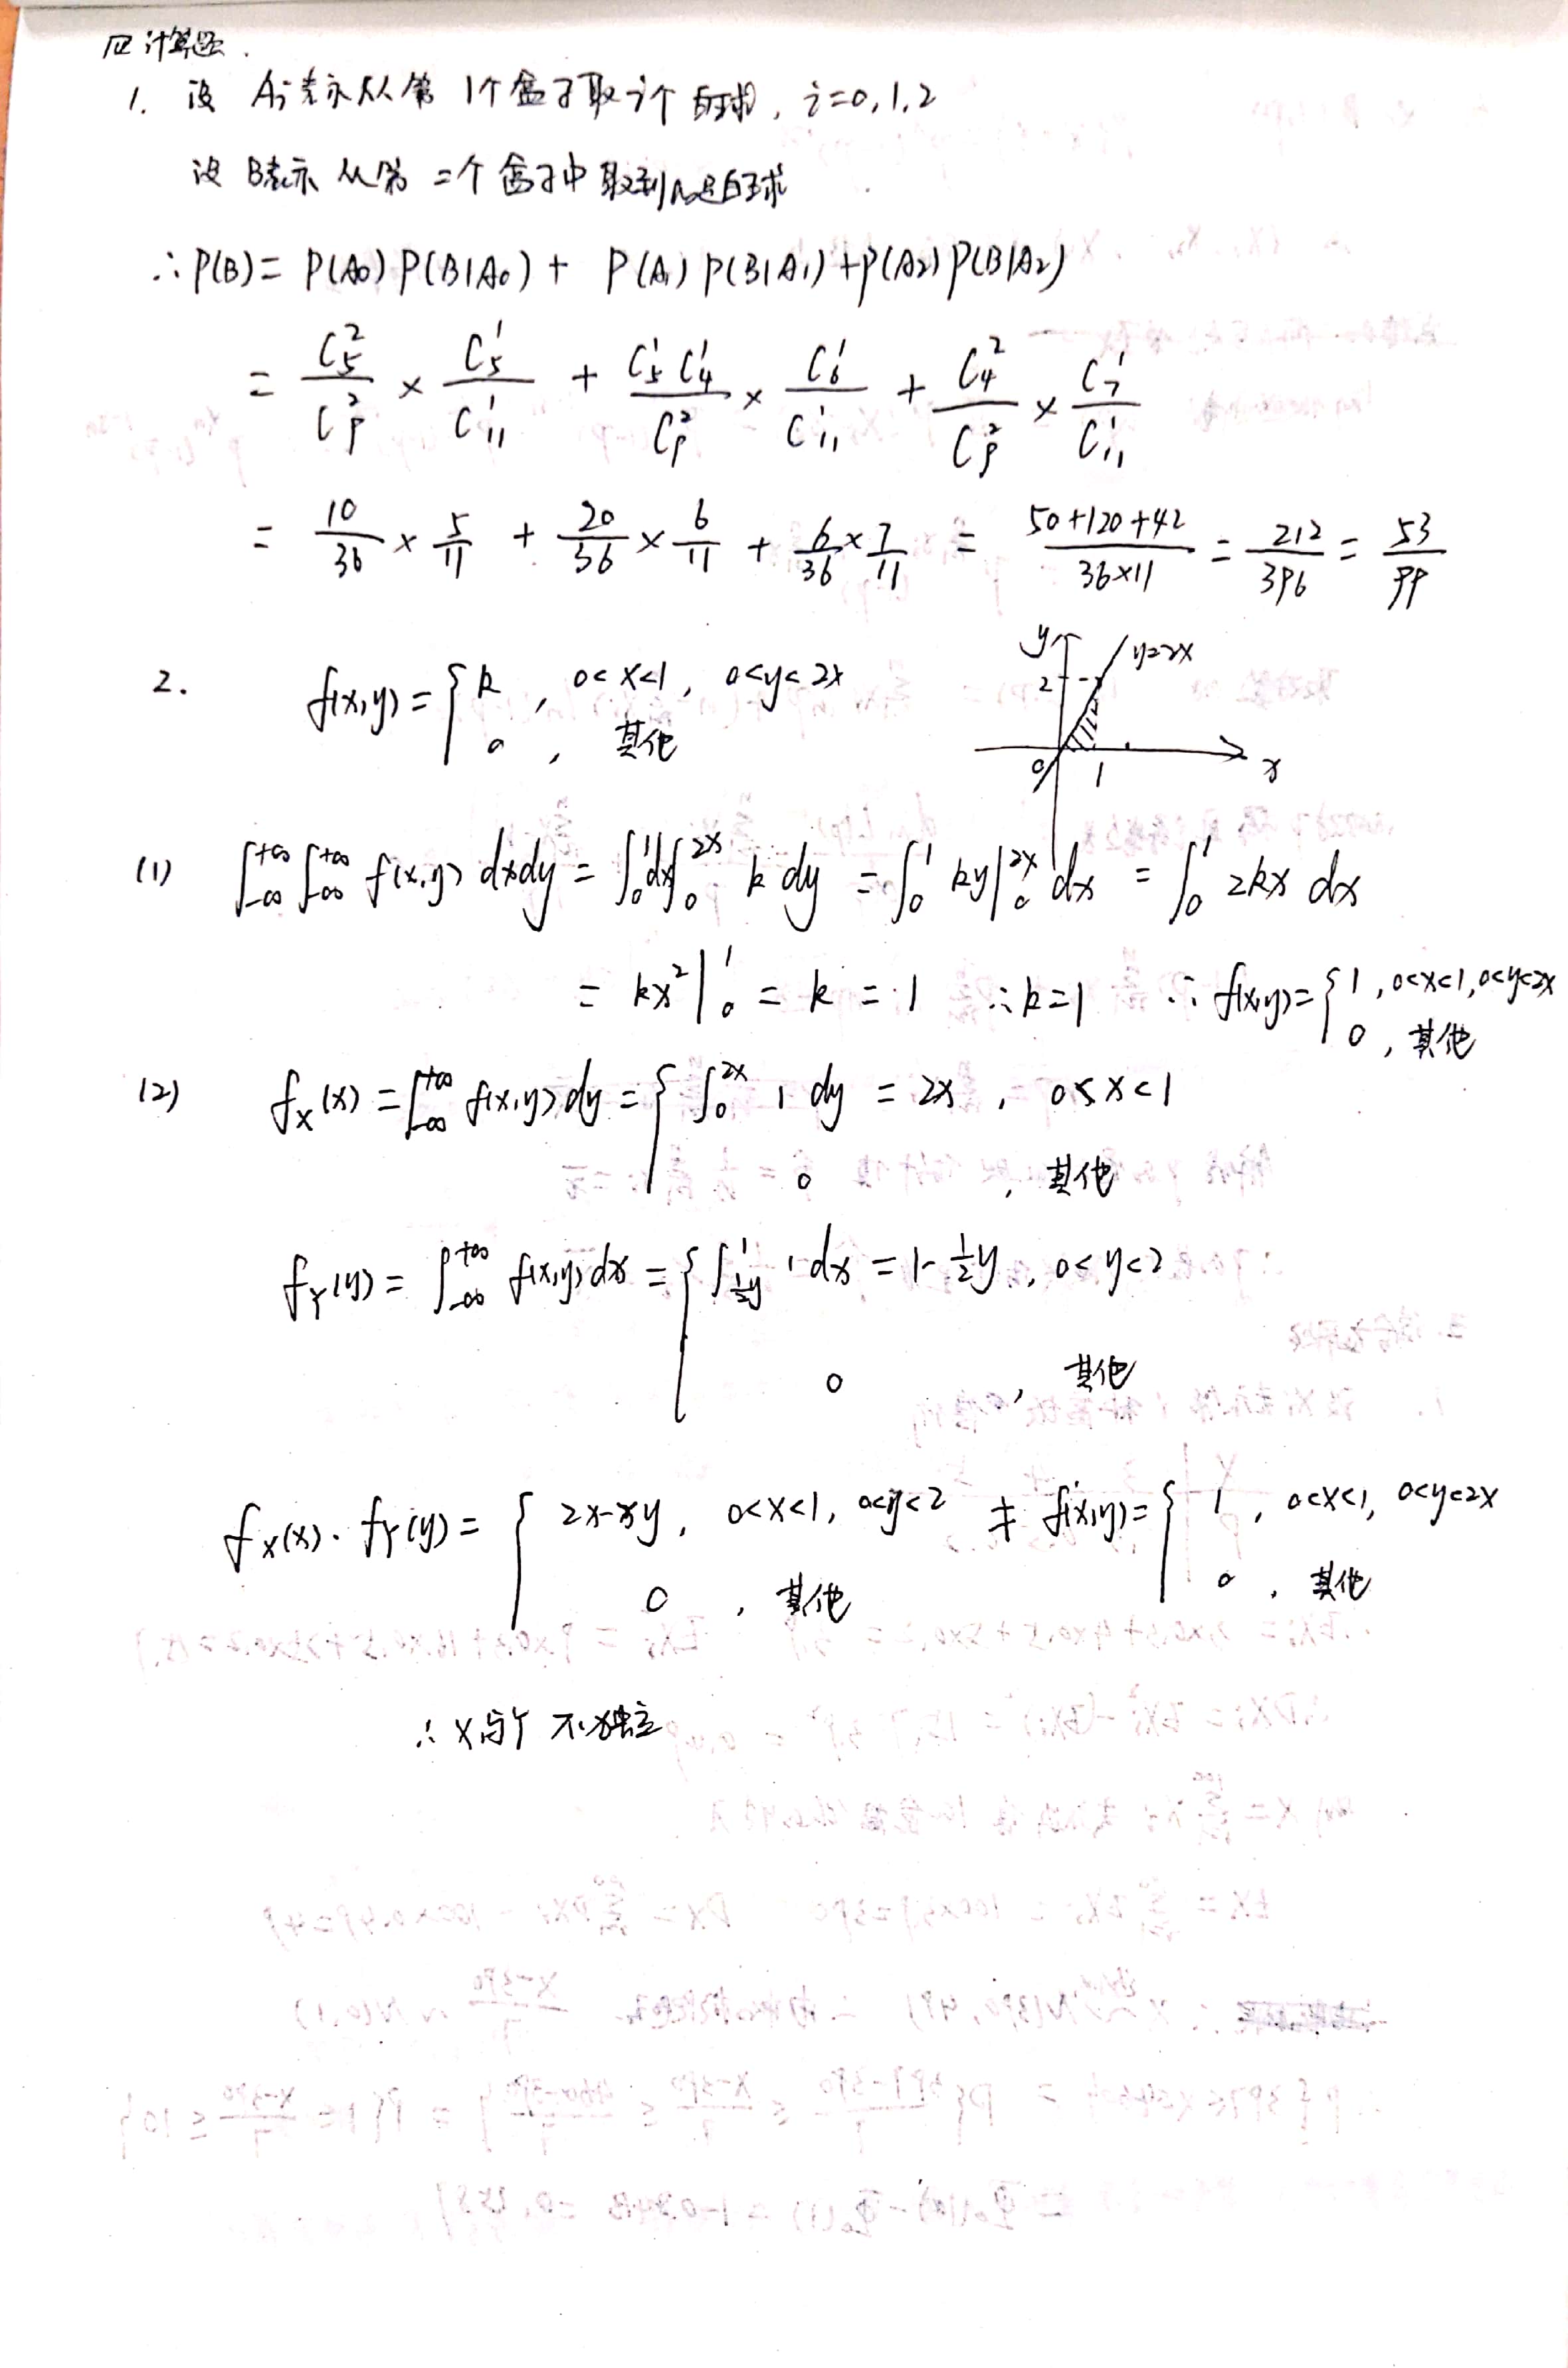 四 计算题.
1. 设 Ai表示从第1个盒子取i个白球, i=0,1,2
设 B表示从第二个盒子中取到的是白球
∴P(B)= P(A₀)P(B|A₀) + P(A₁)P(B|A₁)+P(A₂)P(B|A₂)
= C₅²/C₉² × C₅¹/C₁₁¹ + C₅¹C₄¹/C₉² × C₆¹/C₁₁¹ + C₄²/C₉² × C₇¹/C₁₁¹
= 10/36 × 5/11 + 20/36 × 6/11 + 6/36 × 7/11 = (50+120+42)/(36×11) = 212/396 = 53/99
2. f(x,y)={ k, 0<x<1, 0<y<2x
0, 其他
y y=2x
2
0 1 x
(1) ∫_{-∞}^{+∞}∫_{-∞}^{+∞} f(x,y) dxdy = ∫₀¹dx∫₀^{2x} k dy = ∫₀¹ ky|₀^{2x} dx = ∫₀¹ 2kx dx
= kx²|₀¹ = k = 1 ∴k=1 ∴ f(x,y)={ 1, 0<x<1, 0<y<2x
0, 其他
(2) f_X(x) = ∫_{-∞}^{+∞} f(x,y)dy = { ∫₀^{2x} 1 dy = 2x, 0≤x<1
0, 其他
f_Y(y) = ∫_{-∞}^{+∞} f(x,y)dx = { ∫_{½y}^1 1 dx = 1-½y, 0<y<2
0, 其他
f_X(x)·f_Y(y) = { 2x-xy, 0<x<1, 0<y<2 ≠ f(x,y)={ 1, 0<x<1, 0<y<2x
0, 其他 0, 其他
∴ X与Y 不独立